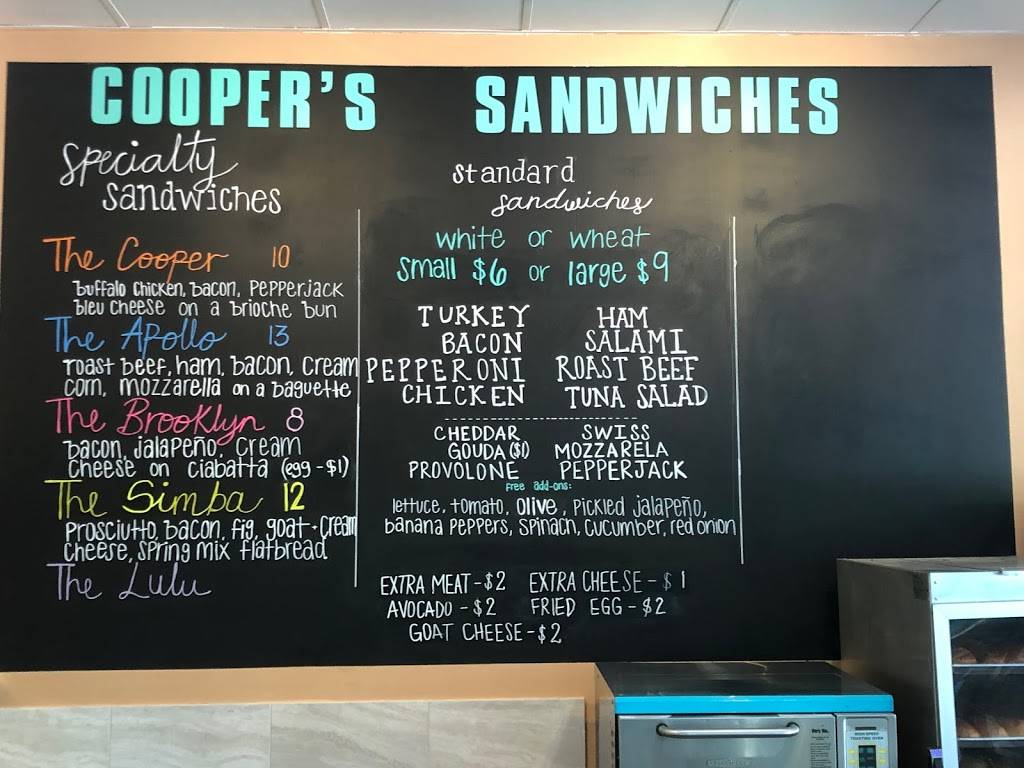 COOPER'S SANDWICHES
specialty
sandwiches
The Cooper 10
buffalo chicken, bacon, pepperjack
bleu cheese on a brioche bun
The Apollo 13
roast beef, ham, bacon, cream
corn, mozzarella on a baguette
The Brooklyn 8
bacon, jalapeño, cream
cheese on ciabatta (egg - $1)
The Simba 12
prosciutto, bacon, fig, goat + cream
cheese, spring mix flatbread
The Lulu
standard
sandwiches
white or wheat
small $6 or large $9
TURKEY HAM
BACON SALAMI
PEPPERONI ROAST BEEF
CHICKEN TUNA SALAD
CHEDDAR SWISS
GOUDA ($1) MOZZARELA
PROVOLONE PEPPERJACK
free add-ons:
lettuce, tomato, olive, pickled jalapeño,
banana peppers, spinach, cucumber, red onion
EXTRA MEAT - $2 EXTRA CHEESE - $1
AVOCADO - $2 FRIED EGG - $2
GOAT CHEESE - $2
HIGH SPEED
TOASTING OVEN